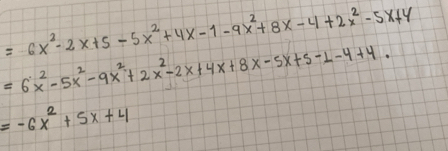 = 6x² - 2x + 5 - 5x² + 4x - 1 - 9x² + 8x - 4 + 2x² - 5x + 4
= 6x² - 5x² - 9x² + 2x² - 2x + 4x + 8x - 5x + 5 - 1 - 4 + 4 .
= -6x² + 5x + 4